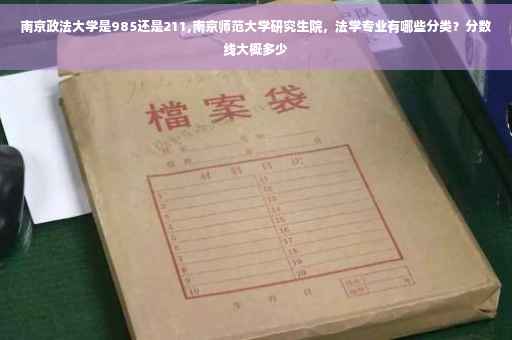 南京政法大学是985还是211,南京师范大学研究生院，法学专业有哪些分类？分数
线大概多少
檔案袋
材料目次
1
2
3
4
5
6
7
8
9
10
11
12
13
14
15
16
17
18
19
20
年 月 日